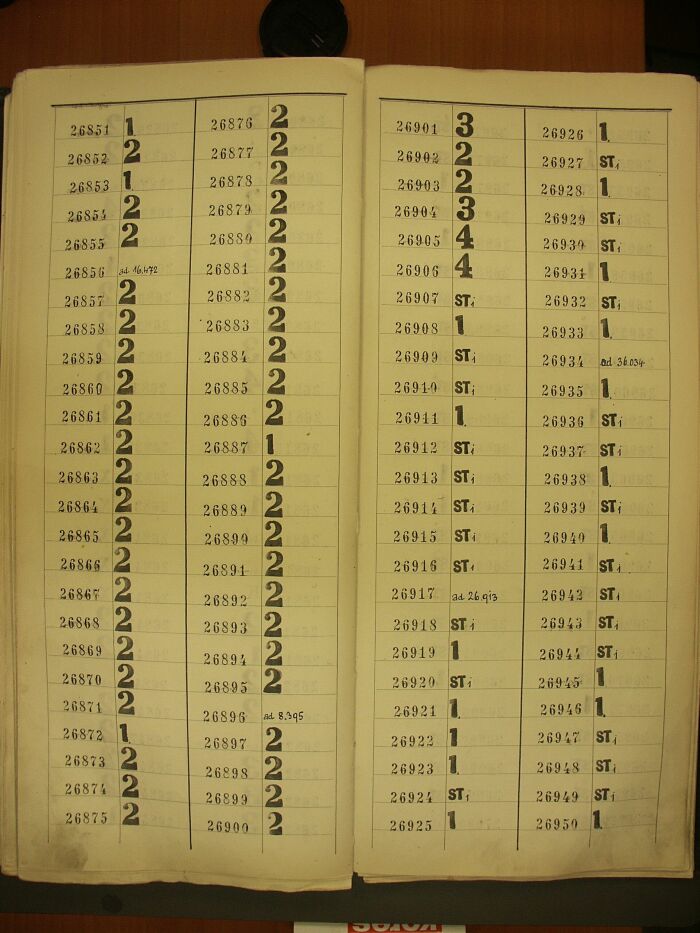 26851 1
26852 2
26853 1
26854 2
26855 2
26856 ad 16.472
26857 2
26858 2
26859 2
26860 2
26861 2
26862 2
26863 2
26864 2
26865 2
26866 2
26867 2
26868 2
26869 2
26870 2
26871 2
26872 1.
26873 2
26874 2
26875 2
26876 2
26877 2
26878 2
26879 2
26880 2
26881 2
26882 2
26883 2
26884 2
26885 2
26886 2
26887 1
26888 2
26889 2
26890 2
26891 2
26892 2
26893 2
26894 2
26895 2
26896 ad 8.395
26897 2
26898 2
26899 2
26900 2
26901 3
26902 2
26903 2
26904 3
26905 4
26906 4
26907 ST1
26908 1
26909 ST1
26910 ST1
26911 1.
26912 ST1
26913 ST1
26914 ST1
26915 ST1
26916 ST1
26917 ad 26.913
26918 ST1
26919 1
26920 ST1
26921 1.
26922 1
26923 1.
26924 ST1
26925 1
26926 1.
26927 ST1
26928 1.
26929 ST1
26930 ST1
26931 1.
26932 ST1
26933 1.
26934 ad 36.034
26935 1.
26936 ST1
26937 ST1
26938 1.
26939 ST1
26940 1.
26941 ST1
26942 ST1
26943 ST1
26944 ST1
26945 1
26946 1.
26947 ST1
26948 ST1
26949 ST1
26950 1.
kores